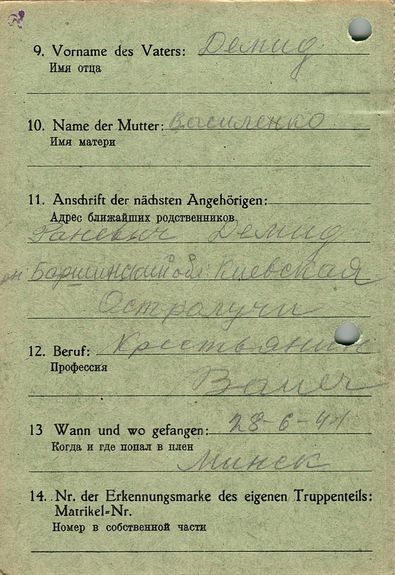 9. Vorname des Vaters: Демид
Имя отца
10. Name der Mutter: Василенко
Имя матери
11. Anschrift der nächsten Angehörigen:
Адрес ближайших родственников
Демид
обл. Киевская
Остролучи
12. Beruf: Крестьянин
Профессия
Bauer
13 Wann und wo gefangen: 28-6-41
Когда и где попал в плен
Минск
14. Nr. der Erkennungsmarke des eigenen Truppenteils:
Matrikel-Nr.
Номер в собственной части